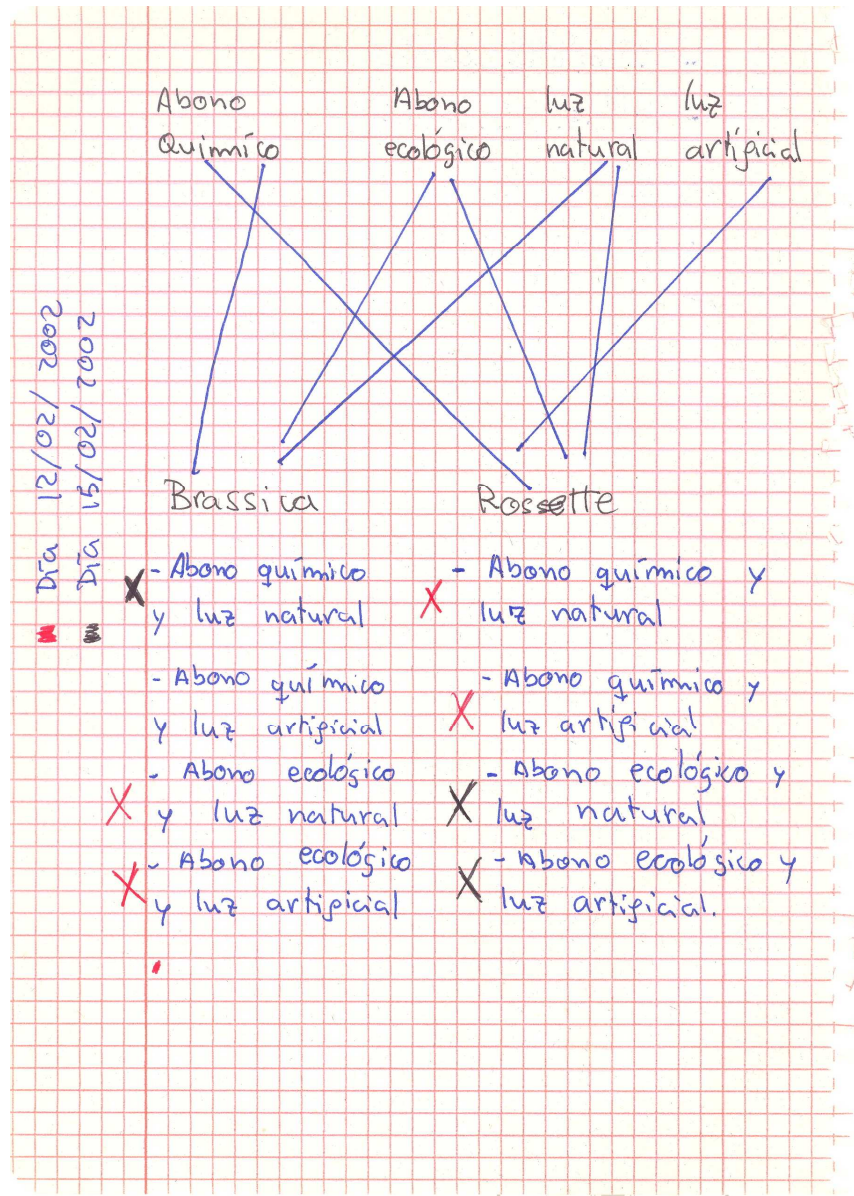 Abono Abono luz luz
Químico ecológico natural artificial
Día 12/02/2002
Día 15/02/2002
Brassica Rossette
X - Abono químico
y luz natural
- Abono químico
y luz artificial
X - Abono ecológico
y luz natural
X - Abono ecológico
y luz artificial
X - Abono químico y
luz natural
X - Abono químico y
luz artificial
X - Abono ecológico y
luz natural
X - Abono ecológico y
luz artificial.